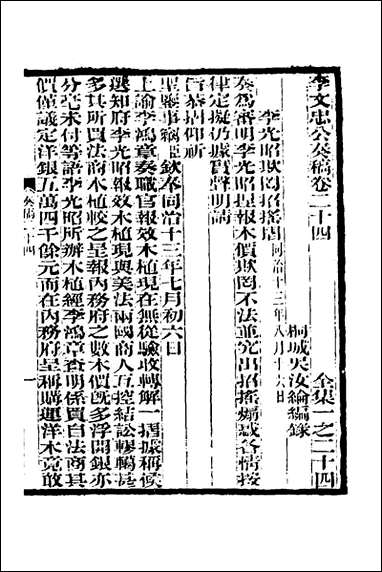 李文忠公奏稿卷二十四
全集一之二十四
桐城吳汝綸編錄
李光昭欺罔招搖摺同治十三年八月十六日
奏爲審明李光昭捏報木價欺罔不法並究出招搖煽惑各情按
律定擬仍據實聲明請
旨恭摺仰祈
聖鑒事竊臣欽奉同治十三年七月初六日
上諭李鴻章奏職官報效木植現在無從驗收轉解一摺據稱候
選知府李光昭報效木植現與美法兩國商人互控結訟轇轕甚
多其所買法商木植較之呈報內務府之數木價旣多浮開銀亦
分毫未付等語李光昭所辦木植經李鴻章查明係買自法商其
價僅議定洋銀五萬四千餘元而在內務府呈稱購運洋木竟敢
奏稿二十四
一